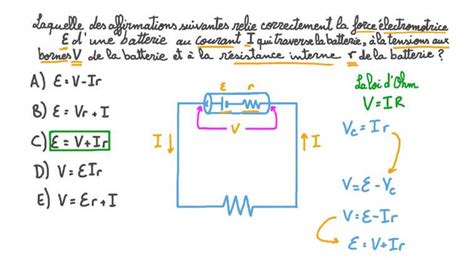 Laquelle des affirmations suivantes relie correctement la force électromotrice
ε d'une batterie au courant I qui traverse la batterie, à la tensions aux
bornes V de la batterie et à la résistance interne r de la batterie ?
A) ε = V-Ir
B) ε = Vr + I
C) ε = V + Ir
D) V = εIr
E) V = εr + I
ε r
V
I ↓
↑ I
La loi d'Ohm
V = IR
Vc = Ir
V = ε - Vc
V = ε - Ir
ε = V + Ir